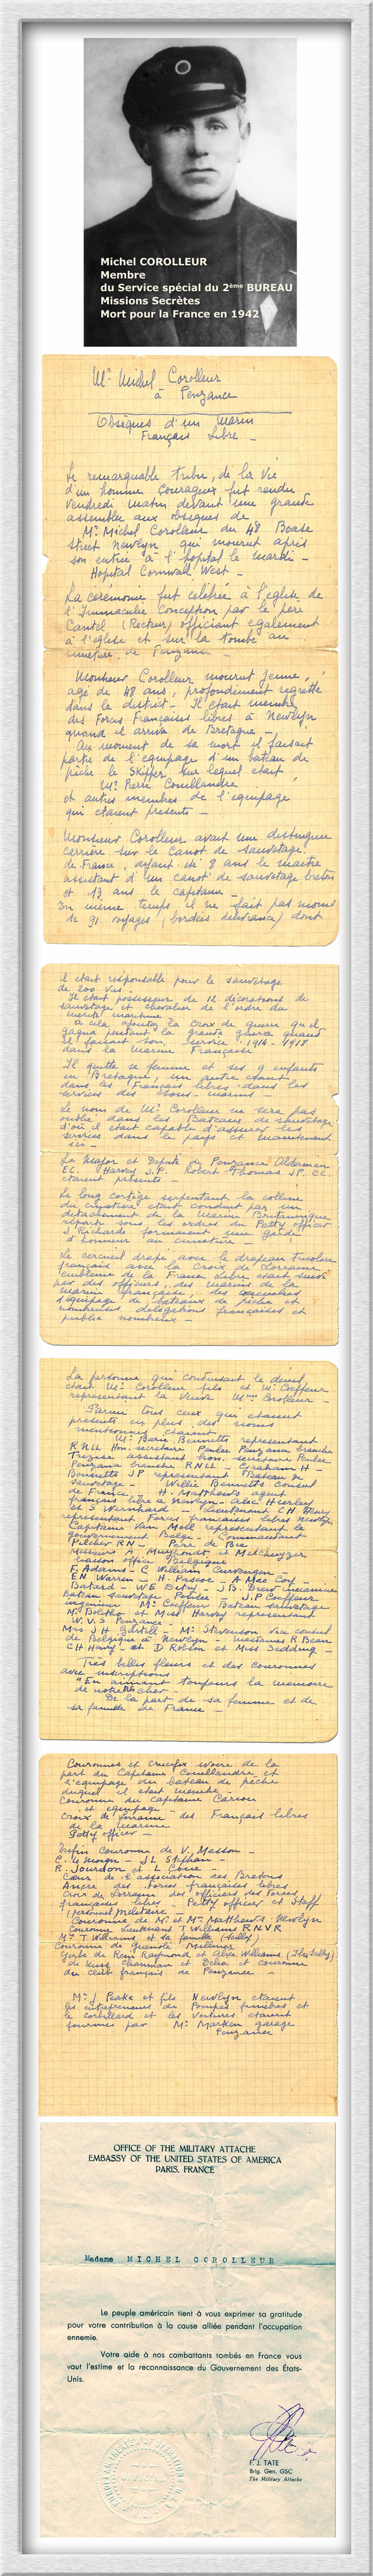 Michel COROLLEUR
Membre
du Service spécial du 2ème BUREAU
Missions Secrètes
Mort pour la France en 1942
Mr Michel Corolleur
à Penzance
Obsèques d'un Marin
Français Libre _
Le remarquable tribu, de la vie
d'un homme courageux fut rendu
vendredi matin devant une grande
assemblée aux obsèques de
Mr Michel Corolleur du 48 Boase
street Newlyn qui mourut après
son entrée à l'hopital le mardi _
Hopital Cornwall West _
La cérémonie fut célébrée à l'église de
l'Immaculée Conception par le père
Cantel (Recteur) officiant egalement
à l'église et sur la tombe au
cimetière de Penzance _
Monsieur Corolleur mourut jeune,
agé de 48 ans, profondément regretté
dans le district _ Il était membre
des Forces Françaises libres à Newlyn
quand il arriva de Bretagne _
Au moment de sa mort il faisait
partie de l'équipage d'un bateau de
pêche le Skipper sur lequel était
Mr Pierre Couillandre
et autres membres de l'équipage
qui étaient présents _
Monsieur Corolleur avait une distinguée
carrière sur le Canot de sauvetage
de France, ayant été 8 ans le maître
assistant d'un canot de sauvetage breton
et 13 ans le capitaine _
En même temps il ne fait pas moins
de 91 voyages (bordées ) dont
il était responsable pour le sauvetage
de 200 vies _
Il était possesseur de 12 décorations de
sauvetage et chevalier de l'ordre du
mérite maritime _
a cela ajoutez la croix de guerre qu'il
gagna pendant la grande guerre quand
il faisait son service 1914 - 1918
dans la Marine Française
Il quitte sa femme et ses 9 enfants
en Bretagne, un autre étant
dans les Français libres dans les
services des sous-marins
Le nom de Mr Corolleur ne sera pas
oublié dans les Bateaux de sauvetage
d'où il était capable d'assurer les
services dans le pays et maintenant
ici _
Le Major et Député de Penzance Alderman
E.C. Harvey J.P. Robert Thomas JP CC
étaient présents _
Le long cortège serpentant la colline
du cimetière était conduit par un
détachement de la Marine Britannique
réparti sous les ordres du Petty officer
J Richards formaient une garde
d'honneur au cimetière _
Le cercueil drapé avec le drapeau tricolore
français avec la Croix de Lorraine,
emblème de la France Libre était suivi
par des officiers, des marins de la
marine française, des
équipage de bateaux de pêche et
nombreuses délégations françaises et
public nombreux _
La personne qui conduisait le deuil
était Mr Corolleur fils et Mr Coeffeur
représentant la Veuve Mme Corolleur _
Parmi tous ceux qui étaient
présents en plus des noms
mentionnés étaient
Mr Barie Bennetts représentant
R.N.L.I. Hon. secretaire Penlee Penzance branche
assistant hon. secrétaire Penlee
Penzance branche R.N.L.I. _ Graham H _
Bennetts JP représentant Bateau de
sauvetage _ Willie Bennetts Consul
de France _ H. Matthews agent
français libre à Newlyn _ Alec Hurley
et S Wernhard _ Lieutenant C H Henry
représentant Forces françaises libres Newlyn
Capitaine Van Moll représentant le
gouvernement Belge _ Commandant
Pilcher RN _ Père de Bie
Messieurs A. et
liaison office Belgique
F. Adams _ C William Curvengen _
E N Warren _ H. Pascoe _ A Mac Coy _
Batard _ W E _ J B. Drew mécanicien
Bateau sauvetage Penlee _ J.P Coeffeur
ingénieur Mr Coeffeur Bateau sauvetage
Mr Bolitho et Miss Harvey représentant
W.V.S Penzance _
Mrs J H Garstill _ Mr Stevenson vice consul
de Belgique à Newlyn _ Mesdames R Bean
C H Henry _ et D. Robson et Miss Sedding _
Très belles fleurs et des couronnes
avec inscriptions
"En aimant toujours la mémoire
de notre cher _
De la part de sa femme et de
sa famille de France _
Couronnes et crucifix ivoire de la
part du Capitaine Couillandre et
l'équipage du bateau de pêche
duquel il était membre _
Couronne du capitaine Carson
et équipage _
Croix de Lorraine des Français libres
de la marine
Petty officer _
Enfin Couronne de V. Masson _
C. Le Moign _ J L Stéphan _
R. Jourdon et L Coïc _
Cœur de l'association des Bretons
Ancre des Forces françaises libres
Croix de Lorraine des officiers des Forces
françaises libres _ Petty officer et staff
(personnel militaire _
Couronne de Mr et Mme Matthews Newlyn
Couronne Lieutenant T Williams R.N.V.R
Mr T Williams et sa famille (Scilly)
couronne de Guénolé Milliner
Gerbe de Rémi Raymond et Alec Williams (Île Scilly)
de Miss Chapman et Delia et couronne
du club français de Penzance _
Mr J Peake et fils Newlyn étaient
les entrepreneurs de Pompes funèbres et
le corbillard et les voitures étaient
fournies par Mr Marken garage
Penzance
OFFICE OF THE MILITARY ATTACHE
EMBASSY OF THE UNITED STATES OF AMERICA
PARIS, FRANCE
Madame MICHEL COROLLEUR
Le peuple américain tient à vous exprimer sa gratitude
pour votre contribution à la cause alliée pendant l'occupation
ennemie.
Votre aide à nos combattants tombés en France vous
vaut l'estime et la reconnaissance du Gouvernement des États-
Unis.
F. J. TATE
Brig. Gen. GSC
The Military Attache
EUROPEAN THEATER OF OPERATIONS
OFFICIAL